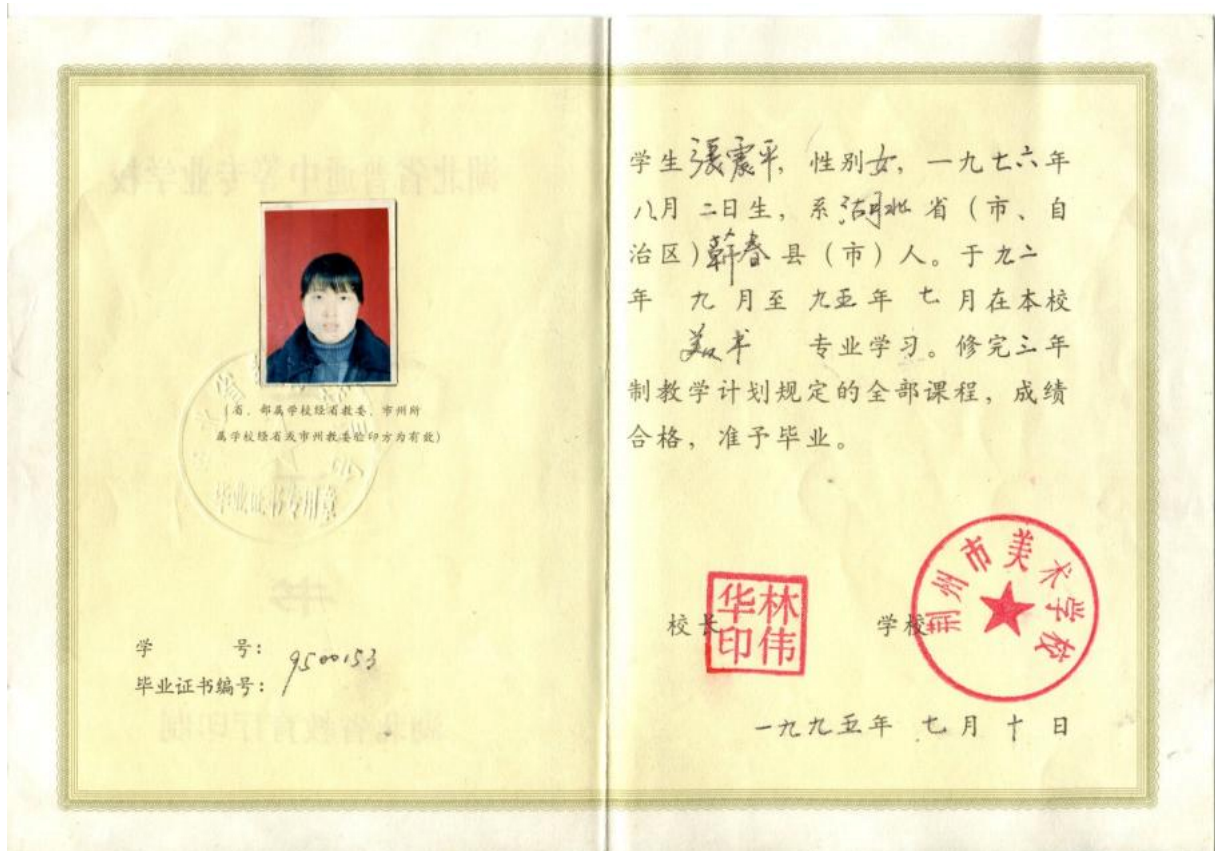 (省、部属学校经省教委、市州所
属学校经省或市州教委验印方为有效)
毕业证书专用章
学 号:
毕业证书编号: 9500153
学生張震平, 性别女, 一九七六年
八月 二日生, 系湖北省 (市、自
治区) 蕲春县 (市) 人。于九二
年 九 月至 九五年 七 月在本校
美术 专业学习。修完三年
制教学计划规定的全部课程, 成绩
合格, 准予毕业。
校长 林伟华印 学校 荆州市美术学校
一九九五年 七月 十 日